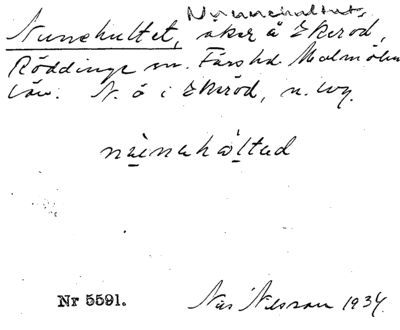 Nunnehultet,
Nunehultet, åker å Ekeröd,
Röddinge sn. Färs hd Malmöhus
län. N. å i Ekeröd, n. vg.
Nr 5591.
Nils Nilsson 1934.